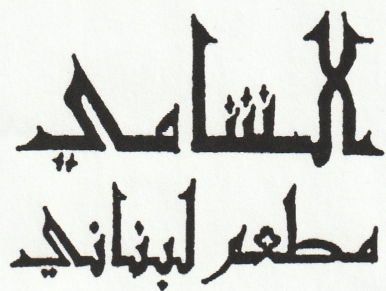 الشامي
مطعم لبناني